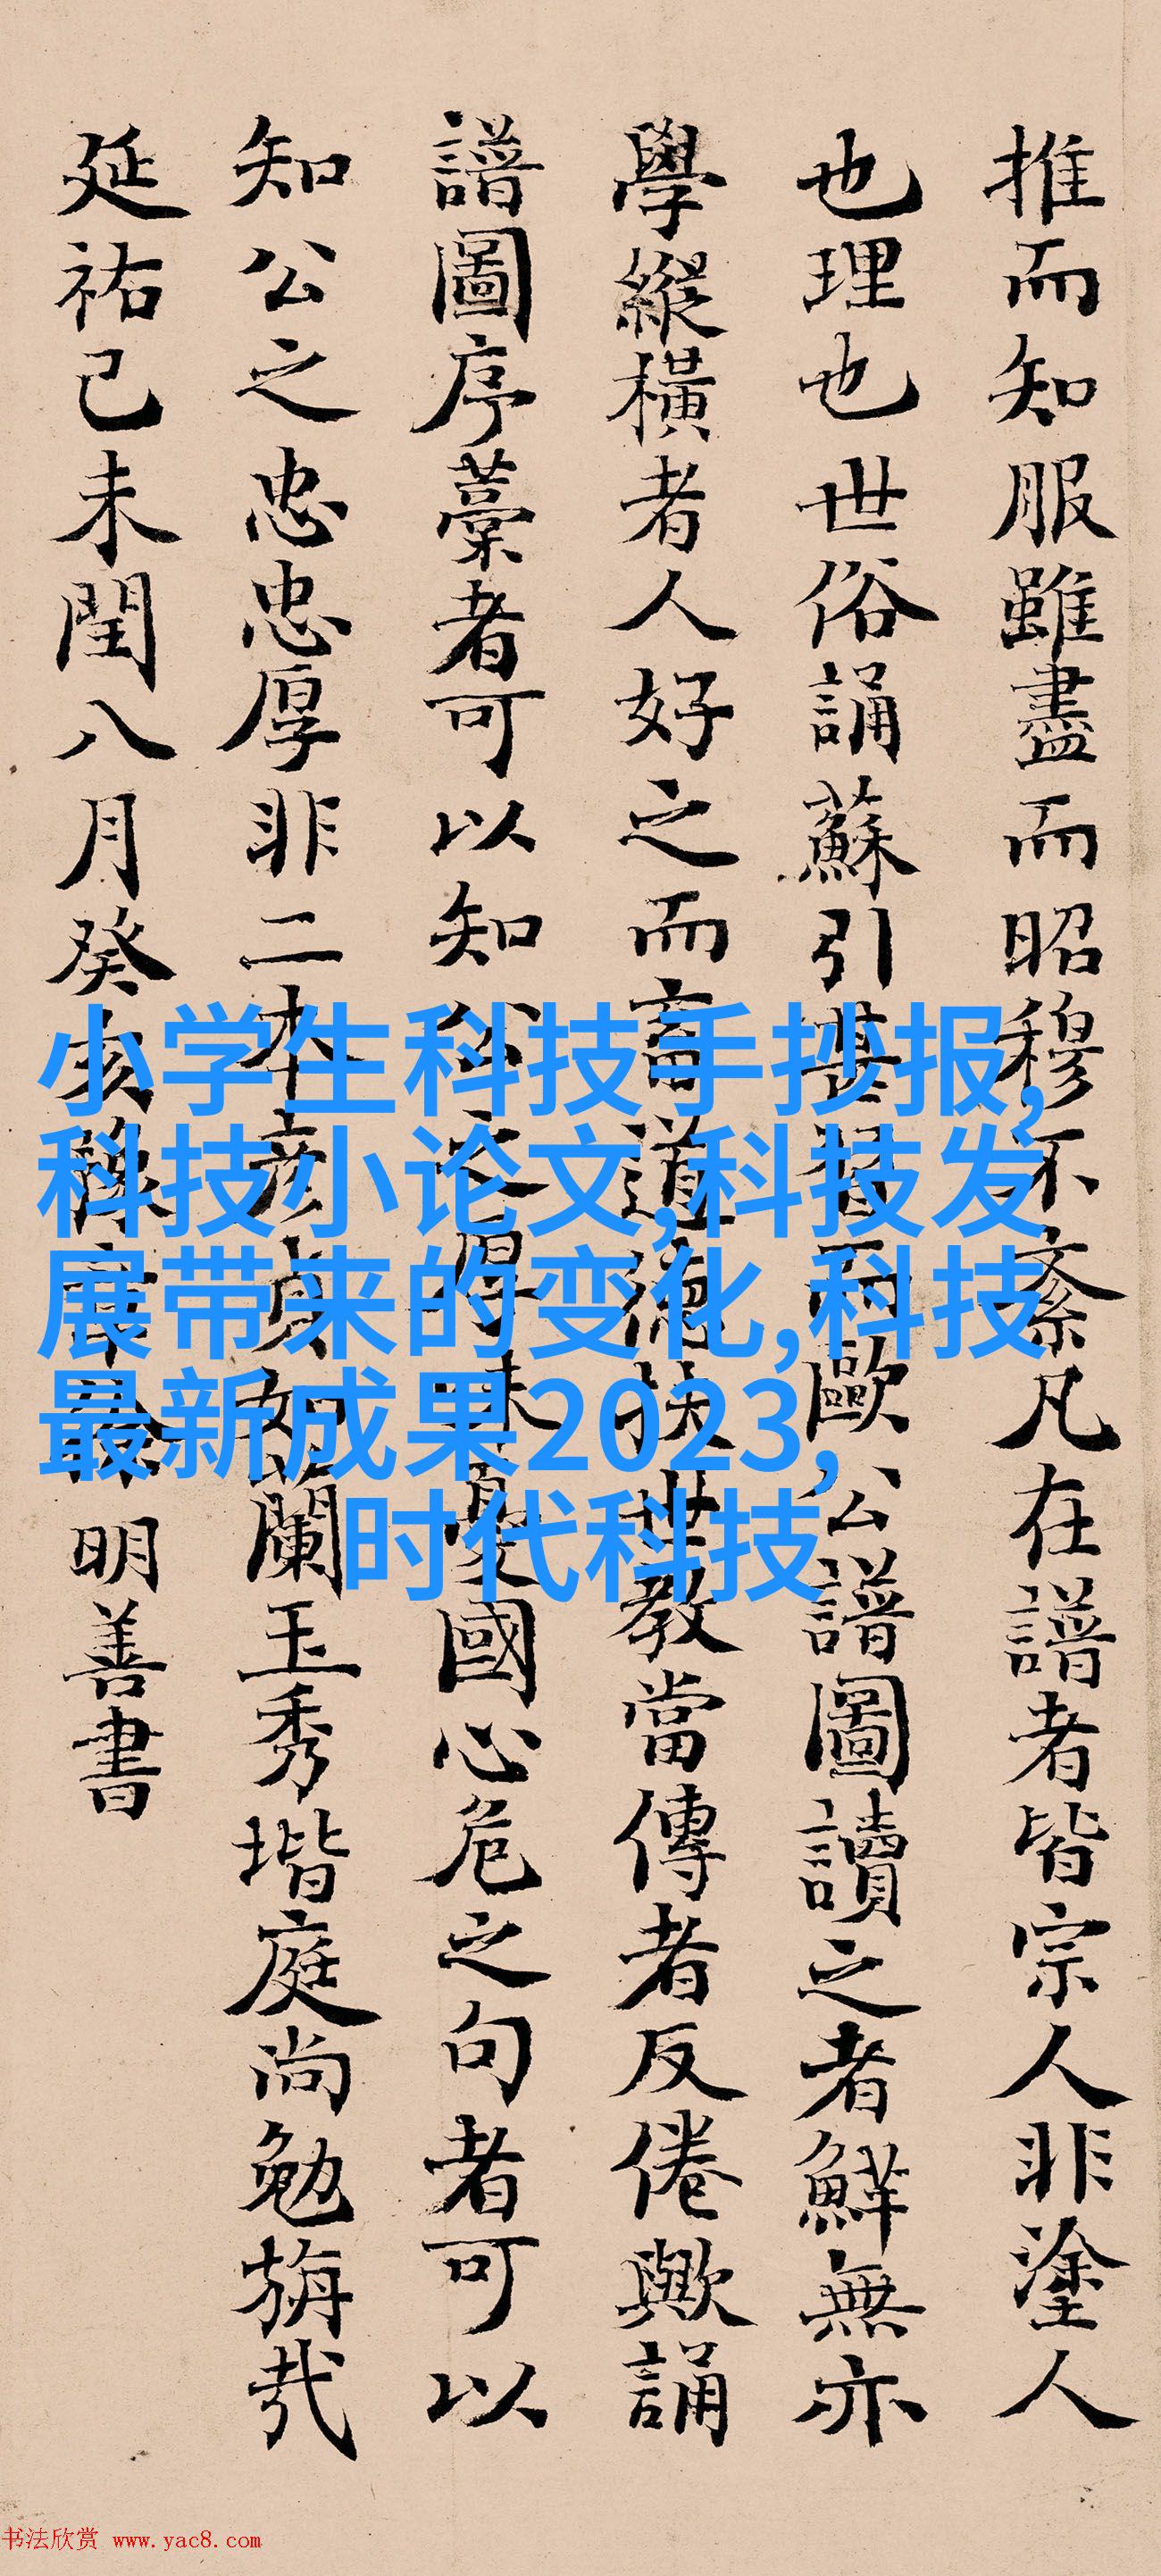 推而知服雖盡而昭穆不紊凡在譜者皆宗人非塗人
也理也世俗誦蘇引甚習而歐公譜圖讀之者鮮無亦
學縱橫者人好之而言道德扶世教當傳者反倦歟誦
譜圖序藁者可以知公之厚味憂國心危之句者可以
知公之忠忠厚非二本彥真如蘭玉秀堦庭尚勉旃哉
延祐己未閏八月癸亥 明善書
小学生科技手抄报,
科技小论文,科技发
展带来的变化,科技
最新成果2023,
时代科技
书法欣赏 www.yac8.com